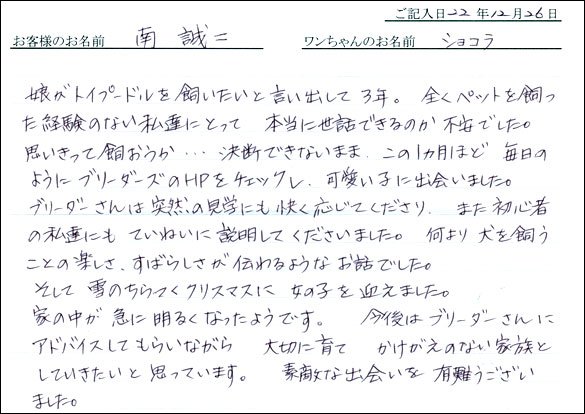 ご記入日22年12月26日
お客様のお名前 南 誠二 ワンちゃんのお名前 ショコラ
娘がトイプードルを飼いたいと言い出して3年。 全くペットを飼っ
た経験のない私達にとって 本当に世話できるのか不安でした。
思いきって飼おうか… 決断できないまま、この1カ月ほど 毎日の
ようにブリーダーズのHPをチェックし、可愛い子に出会いました。
ブリーダーさんは突然の見学にも快く応じてくださり、また初心者
の私達にも ていねいに説明してくださいました。 何より犬を飼う
ことの楽しさ、すばらしさが伝わるようなお話でした。
そして 雪のちらつくクリスマスに 女の子を迎えました。
家の中が急に明るくなったようです。 今後はブリーダーさんに
アドバイスしてもらいながら 大切に育て かけがえのない家族と
していきたいと思っています。 素敵な出会いを有難うござい
ました。